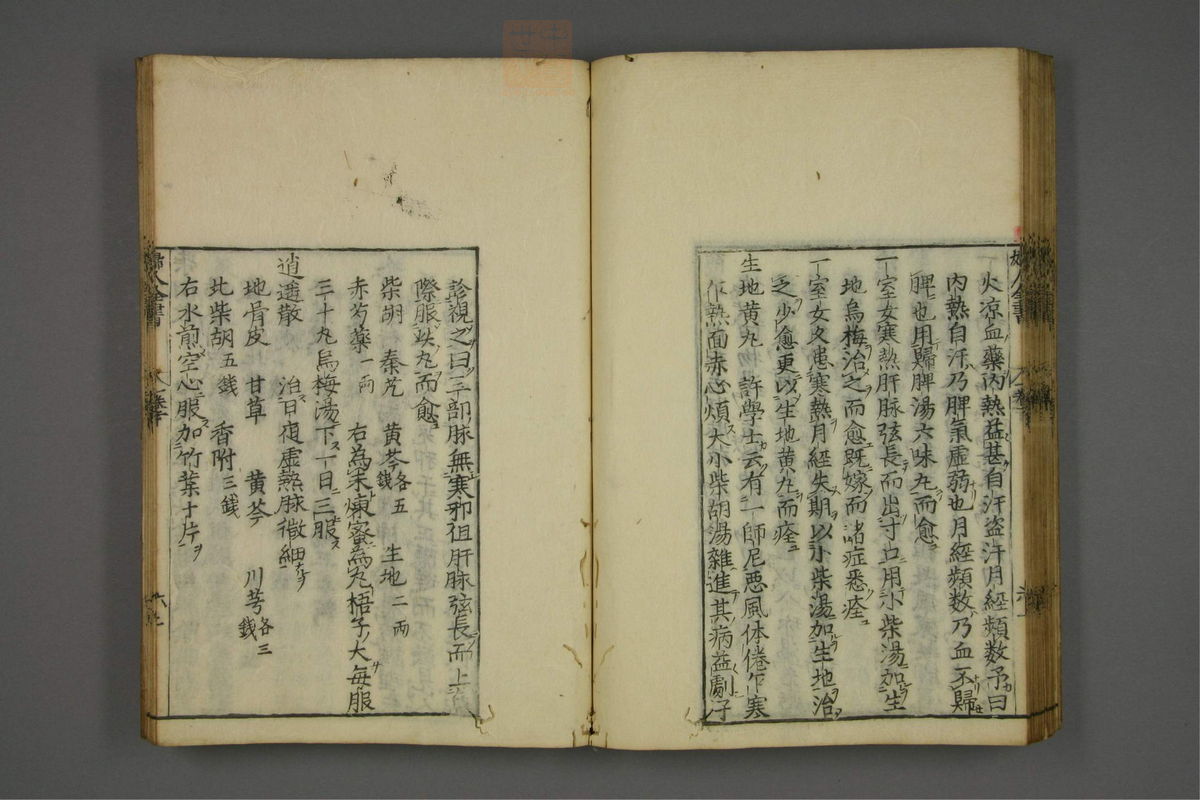 火涼血藥內熱益甚自汗盗汗月經頻數予曰
內熱自汗乃脾氣虛弱也月經頻数乃血不歸
脾也用歸脾湯六味丸而愈
一室女寒熱肝脉弦長而出寸口用小柴湯加生
地烏梅治之而愈既嫁而諸症悉痊
一室女久患寒熱月經失期以小柴湯加生地治
之少愈更以生地黄丸而痊
生地黄丸 許學士云有一師尼悪風体倦乍寒
乍熱面赤心煩大小柴胡湯雜進其病益劇予
診視之曰二部脉無寒邪但肝脉弦長而上
際服此丸而愈
柴胡 秦艽 黄芩各五錢 生地二両
赤芍藥一両 右為末煉蜜為丸梧子大每服
三十丸烏梅湯下一日三服
逍遥散 治日夜虛熱脉微細
地骨皮 甘草 黄芩 川芎各三錢
北柴胡五錢 香附三錢
右水煎空心服加竹葉十片
婦人全書